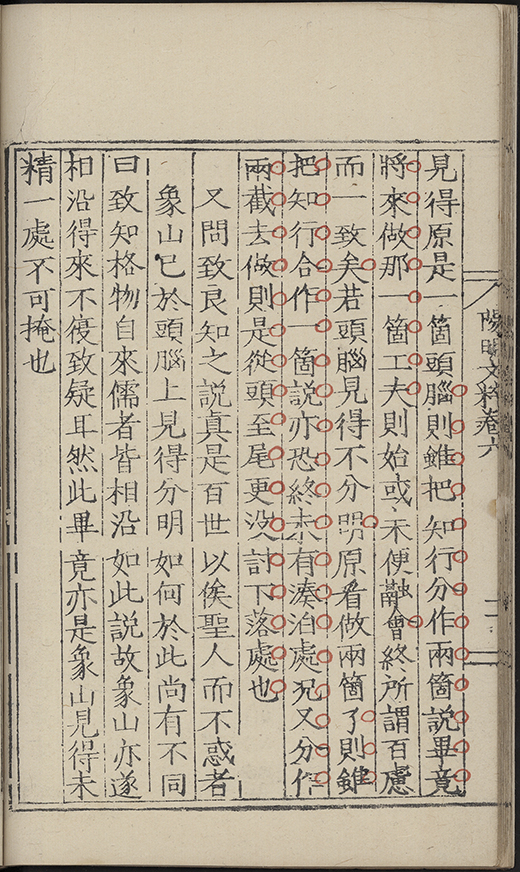 陽明文粹卷六
二
見得原是一箇頭腦則雖把知行分作兩箇說畢竟
將來做那一箇工夫則始或未便融會終所謂百慮
而一致矣若頭腦見得不分明原看做兩箇了則雖
把知行合作一箇說亦恐終未有湊泊處況又分作
兩截去做則是從頭至尾更沒討下落處也
又問致良知之說真是百世以俟聖人而不惑者
象山已於頭腦上見得分明如何於此尚有不同
曰致知格物自來儒者皆相沿如此說故象山亦遂
相沿得來不復致疑耳然此畢竟亦是象山見得未
精一處不可掩也